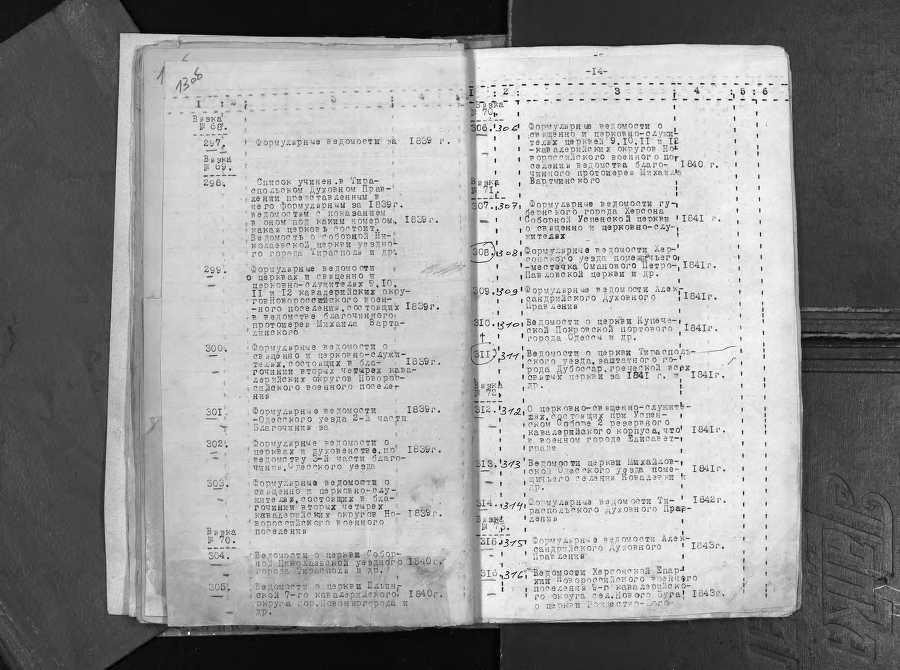 1306
1 2 3 4
Вязка
№ 68.
297. Формулярные ведомости за 1839 г.
Вязка
№ 69.
298. Список учинен. в Тира-
спольском Духовном Прав-
лении представленным в
него формулярным за 1839г.
ведомостям с показанием
в оном под каким номером, 1839г.
какая церковь состоит.
Ведомость о соборной Ни-
колаевской церкви уездно-
го города Тирасполя и др.
299. Формулярные ведомости
о церквах и священно и
церковно-служителях 9,10,
11 и 12 кавалерийских окру-
гов Новороссийского воен-
-ного поселения, состоящих 1839г.
в ведомстве благочинного
протоиерея Михаила Варта-
минского
300. Формулярные ведомости о
священно и церковно-служи-
телях, состоящих в бла- 1839г.
гочинии вторых четырех кава-
лерийских округов Новорос-
сийского военного поселе-
ния
301. Формулярные ведомости 1839г.
-Одесского уезда 2-й части
благочиния за
302. Формулярные ведомости о
церквах и духовенстве, по 1839г.
ведомству 3-й части благо-
чиния, Одесского уезда
303. Формулярные ведомости о
священно и церковно-слу-
жителях, состоящих в бла-
гочинии вторых четырех
кавалерийских округов Но- 1839г.
вороссийского военного
поселения
Вязка
№ 70.
304. Ведомости о церкви Собор-
ной Николаевской уездного 1840г.
города Тирасполя и др.
305. Ведомости о церкви Ильин-
ской 7-го кавалерийского 1840г.
округа гор. Новомиргорода и
др.
-14-
1 2 3 4 5 6
Вязка
№ 70.
306. 306 Формулярные ведомости о
священно и церковно-служи-
телях церквей 9,10,11 и 12
-кавалерийских округов Но-
вороссийского военного по-
селения ведомства благо- 1840 г.
чинного протоиерея Михаила
Вартминского
Вязка
№ 71.
307. 307 Формулярные ведомости гу-
бернского города Херсона
Соборной Успенской церкви 1841 г.
о священно и церковно-слу-
жителях
308. 308 Формулярные ведомости Хер-
сонского уезда помещичьего
-местечка Оманового Петро- 1841г.
Павловской церкви и др.
309. 309 Формулярные ведомости Алек-
сандрийского Духовного 1841г.
Правления
310. 310 Ведомости о церкви Купече-
ской Покровской портового 1841г.
города Одессы и др.
311. 311 Ведомости о церкви Тирасполь-
ского уезда, заштатного го-
рода Дубоссар, греческой всех
святых церкви за 1841 г. и 1841г.
др.
Вязка
№ 72.
312. 312 О церковно-священно-служите-
лях, состоящих при Успен-
ском Соборе 2 резервного
кавалерийского корпуса, что 1841г.
в военном городе Елисавет-
граде
313. 313 Ведомости церкви Михайлов-
ской Одесского уезда поме- 1841г.
щичьего селения Ковалевки и
др.
314. 314 Формулярные ведомости Ти- 1842г.
распольского Духовного Прав-
ления
Вязка
315. 315 Формулярные ведомости Алек-
сандрийского Духовного 1843г.
Правления
316. 316 Ведомости Херсонской Епар-
хии Новороссийского военного
поселения 6-го кавалерийско-
го округа сел. Нового Буга 1843г.
о церкви Рождество-Бого-